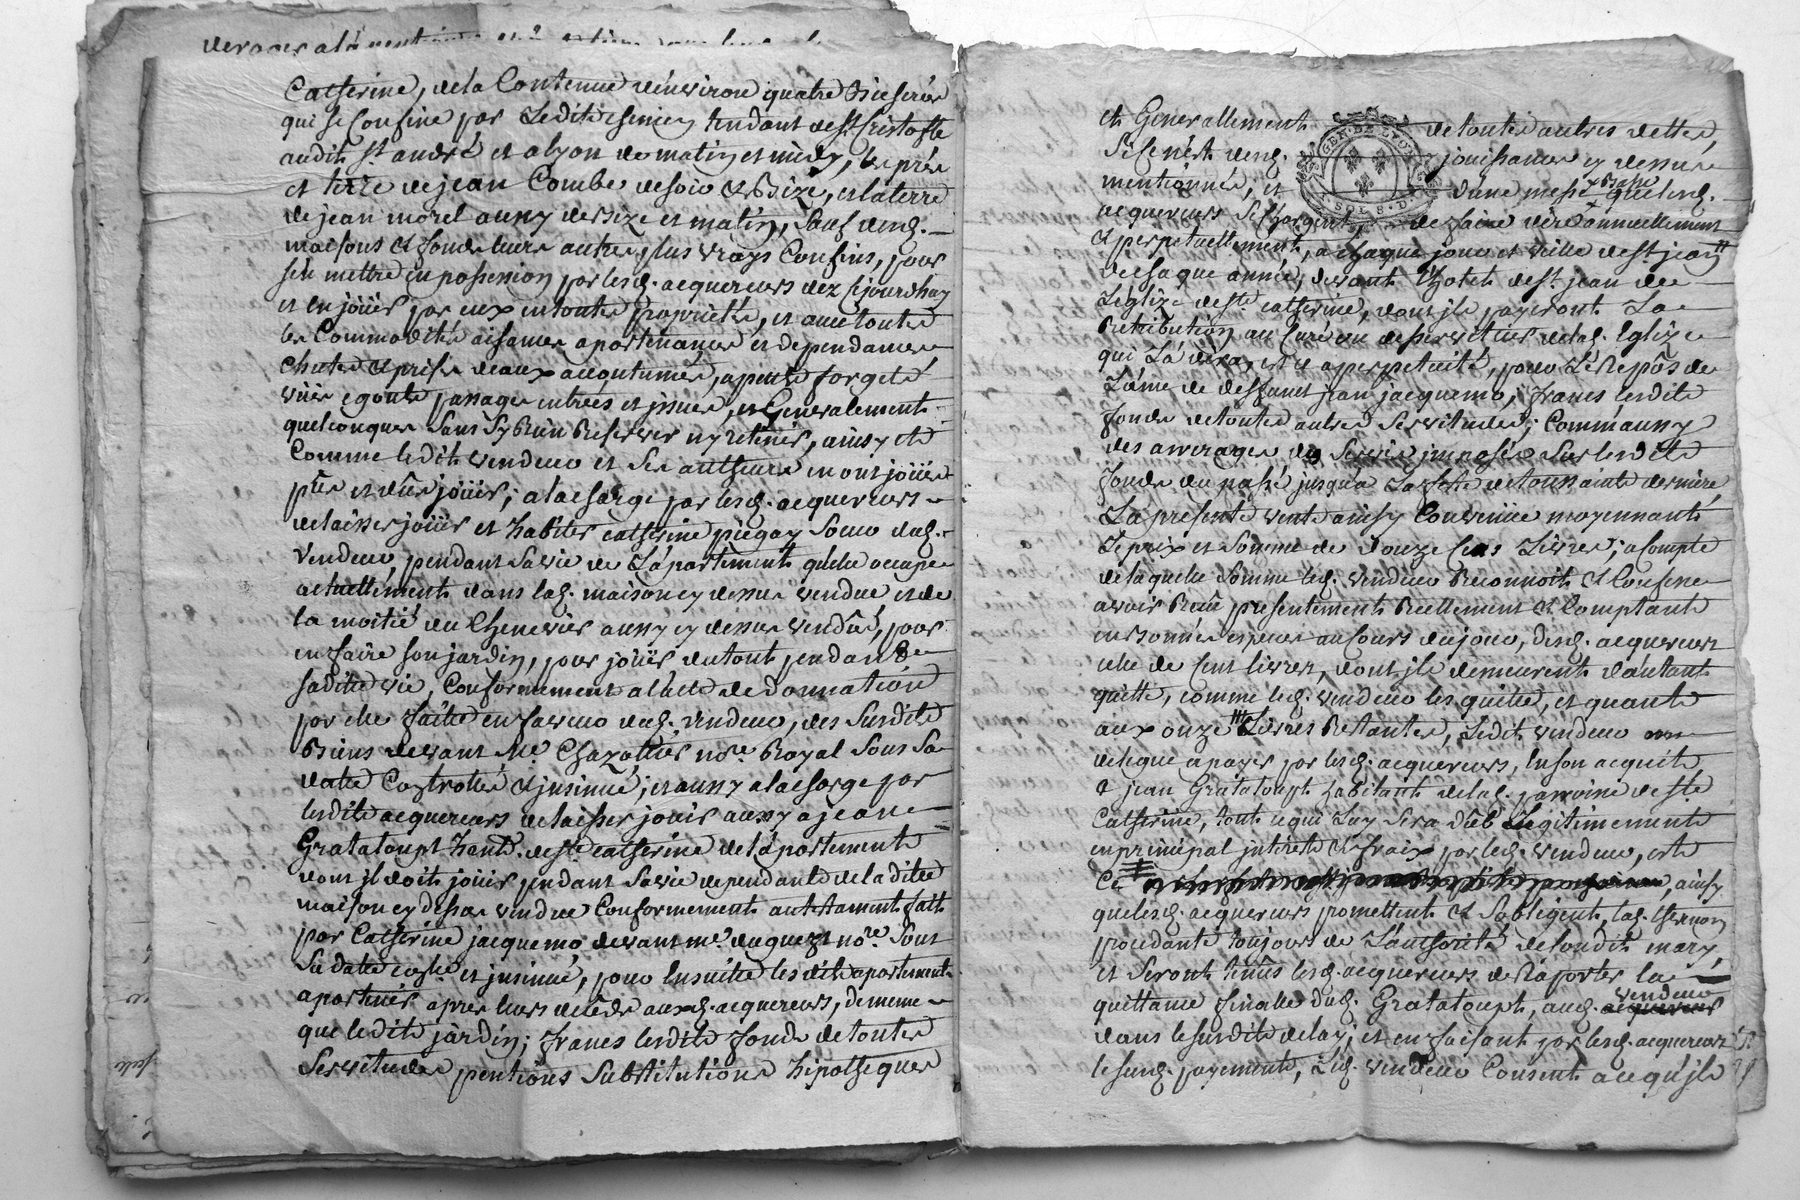 Catherine, de la Contenue d'environ quatre Bicherées
qui se Confine par Le dit chemin tendant de st Cristofle
audit st andré et a lyon de matin et midy, les prés
et terre de jean Combe de soir et Bize, et la terre
de jean morel aussy de bize et matin, sauf desd.
maisons et fonds leurs autres plus vrays Confins, pour
s'en mettre en possession par lesd. acquereurs dez ce jourdhuy
et en jouir par eux en toute proprieté, et avec toutes
les Commodités aisances apartenances et dependances
chutes et prises deaux accoutumées, apents forgets
viies egouts passages entrées et issues, et Generalement
quelconques sans sy Rien Reserver ny retenir, ainsy et
Comme ledit vendeur et ses autheurs en ont jouis
pûs et dûs jouir; a la charge par lesd. acquereurs
de laisser jouir et habiter catherine piegay soeur dud.
vendeur, pendant sa vie de L'apartement quelle occupe
actuellement dans lad. maison cy dessus vendue et de
la moitié du Chenevier aussy cy dessus vendû, pour
en faire son jardin, pour jouir du tout pendant
sadite vie, Conformement a lacte de donnation
par elle faitte en faveur dud. vendeur, des susdits
Biens devant Me. Chazottier nore. Royal sous sa
datte Controllé et insinué; et aussy a la charge par
lesdits acquereurs de laisser jouir aussy a jean
Gratatoupt habt. de ste catherine de l'apartement
dont il doit jouir pendant sa vie dependant de la dite
maison cy dessus vendue Conformement au testament fait
par Catherine jacquemo devant me. duguet nore. sous
sa datte et insinué, pour Ensuitte les dits apartements
apartenir aprés leurs decéds auxd. acquereurs, de meme
que ledit jardin; francs lesdits fonds de toutes
servitudes pentions substitutions hipotheques
et Generallement de toutes autres dettes,
si Ce n'est desd. jouissances cy dessus
mentionnés, et d'une messe Basse que lesd.
acquereurs se Chargent de faire dire annuellement
et perpetuellement, a chaque jour et veille de st jean
de chaque année, devant l'hotel de st. jean de
L'eglize de ste catherine, dont ils payeront La
Retribution au Curé ou desservitier de lad. Eglize
qui La dira, et a perpetuité, pour Le Repôs de
L'âme de deffunt jean jacquemo, francs lesdits
fonds de toutes autres servitudes; Comm'aussy
des arrerages de servis imposés sur lesdits
fonds du passé jusqu'a La fete de toussaints derniére
La presente vente ainsy Convenüe moyennant
Le prix et somme de douze Cens Livres; a Compte
de laquelle somme led. vendeur Reconnoit et Confesse
avoir Reçu presentement Reellement et Comptant
en bonnes especes au Cours du jour, desd. acquereurs
celle de Cent livres, dont ils demeurent d'autant
quitte, comme led. vendeur les quitte, et quant
aux onze Livres Restantes, Ledit vendeur
delegue a payer par lesd. acquereurs, En son acquit
a jean Gratatoupt habitant de lad. parroisse de ste
Catherine, tout ce qui Luy sera dûb Legitimement
en principal interets et fraix par led. vendeur,
Ce ainsy
que lesd. acquereurs promettent et s'obligent, lad. thernon
procedante toujours de L'authorité de sondit mary,
et seront tenûs lesd. acquereurs de Raporter la
quittance finalle dud. Gratatoupt, aud. vendeur
dans le susdit delay; et en faisant par lesd. acquereurs
le susd. payement, Led. vendeur Consent a ce qu'ils